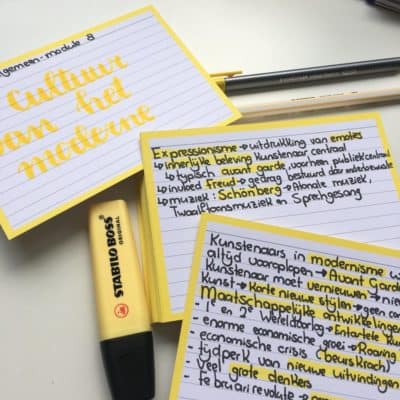 Algemeen - module 8
Cultuur
van het
moderne
Expressionisme → uitdrukking van emoties
↳ innerlijke beleving kunstenaar centraal
↳ typisch avant garde, voorheen publiek centraal
↳ invloed freud → gedrag bestuurd door onderbewuste
↳ muziek: Schönberg → Atonale muziek,
Twaalftoonsmuziek en Sprechgesang
STABILO BOSS
ORIGINAL
Kunstenaars in modernisme
altijd vooroplopen → Avant Garde
Kunstenaar moet vernieuwen →
Kunst → Korte nieuwe stijlen → geen
Maatschappelijke ontwikkelingen
- 1e en 2e Wereldoorlog → Entartete
- enorme economische groei → Roaring
- economische crisis (beurskrach)
- tijdperk van nieuwe uitvindingen
- Veel grote denkers